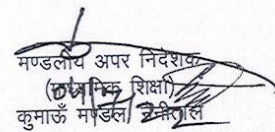 मण्डलीय अपर निदेशक
(माध्यमिक शिक्षा)
कुमाऊँ मण्डल नैनीताल